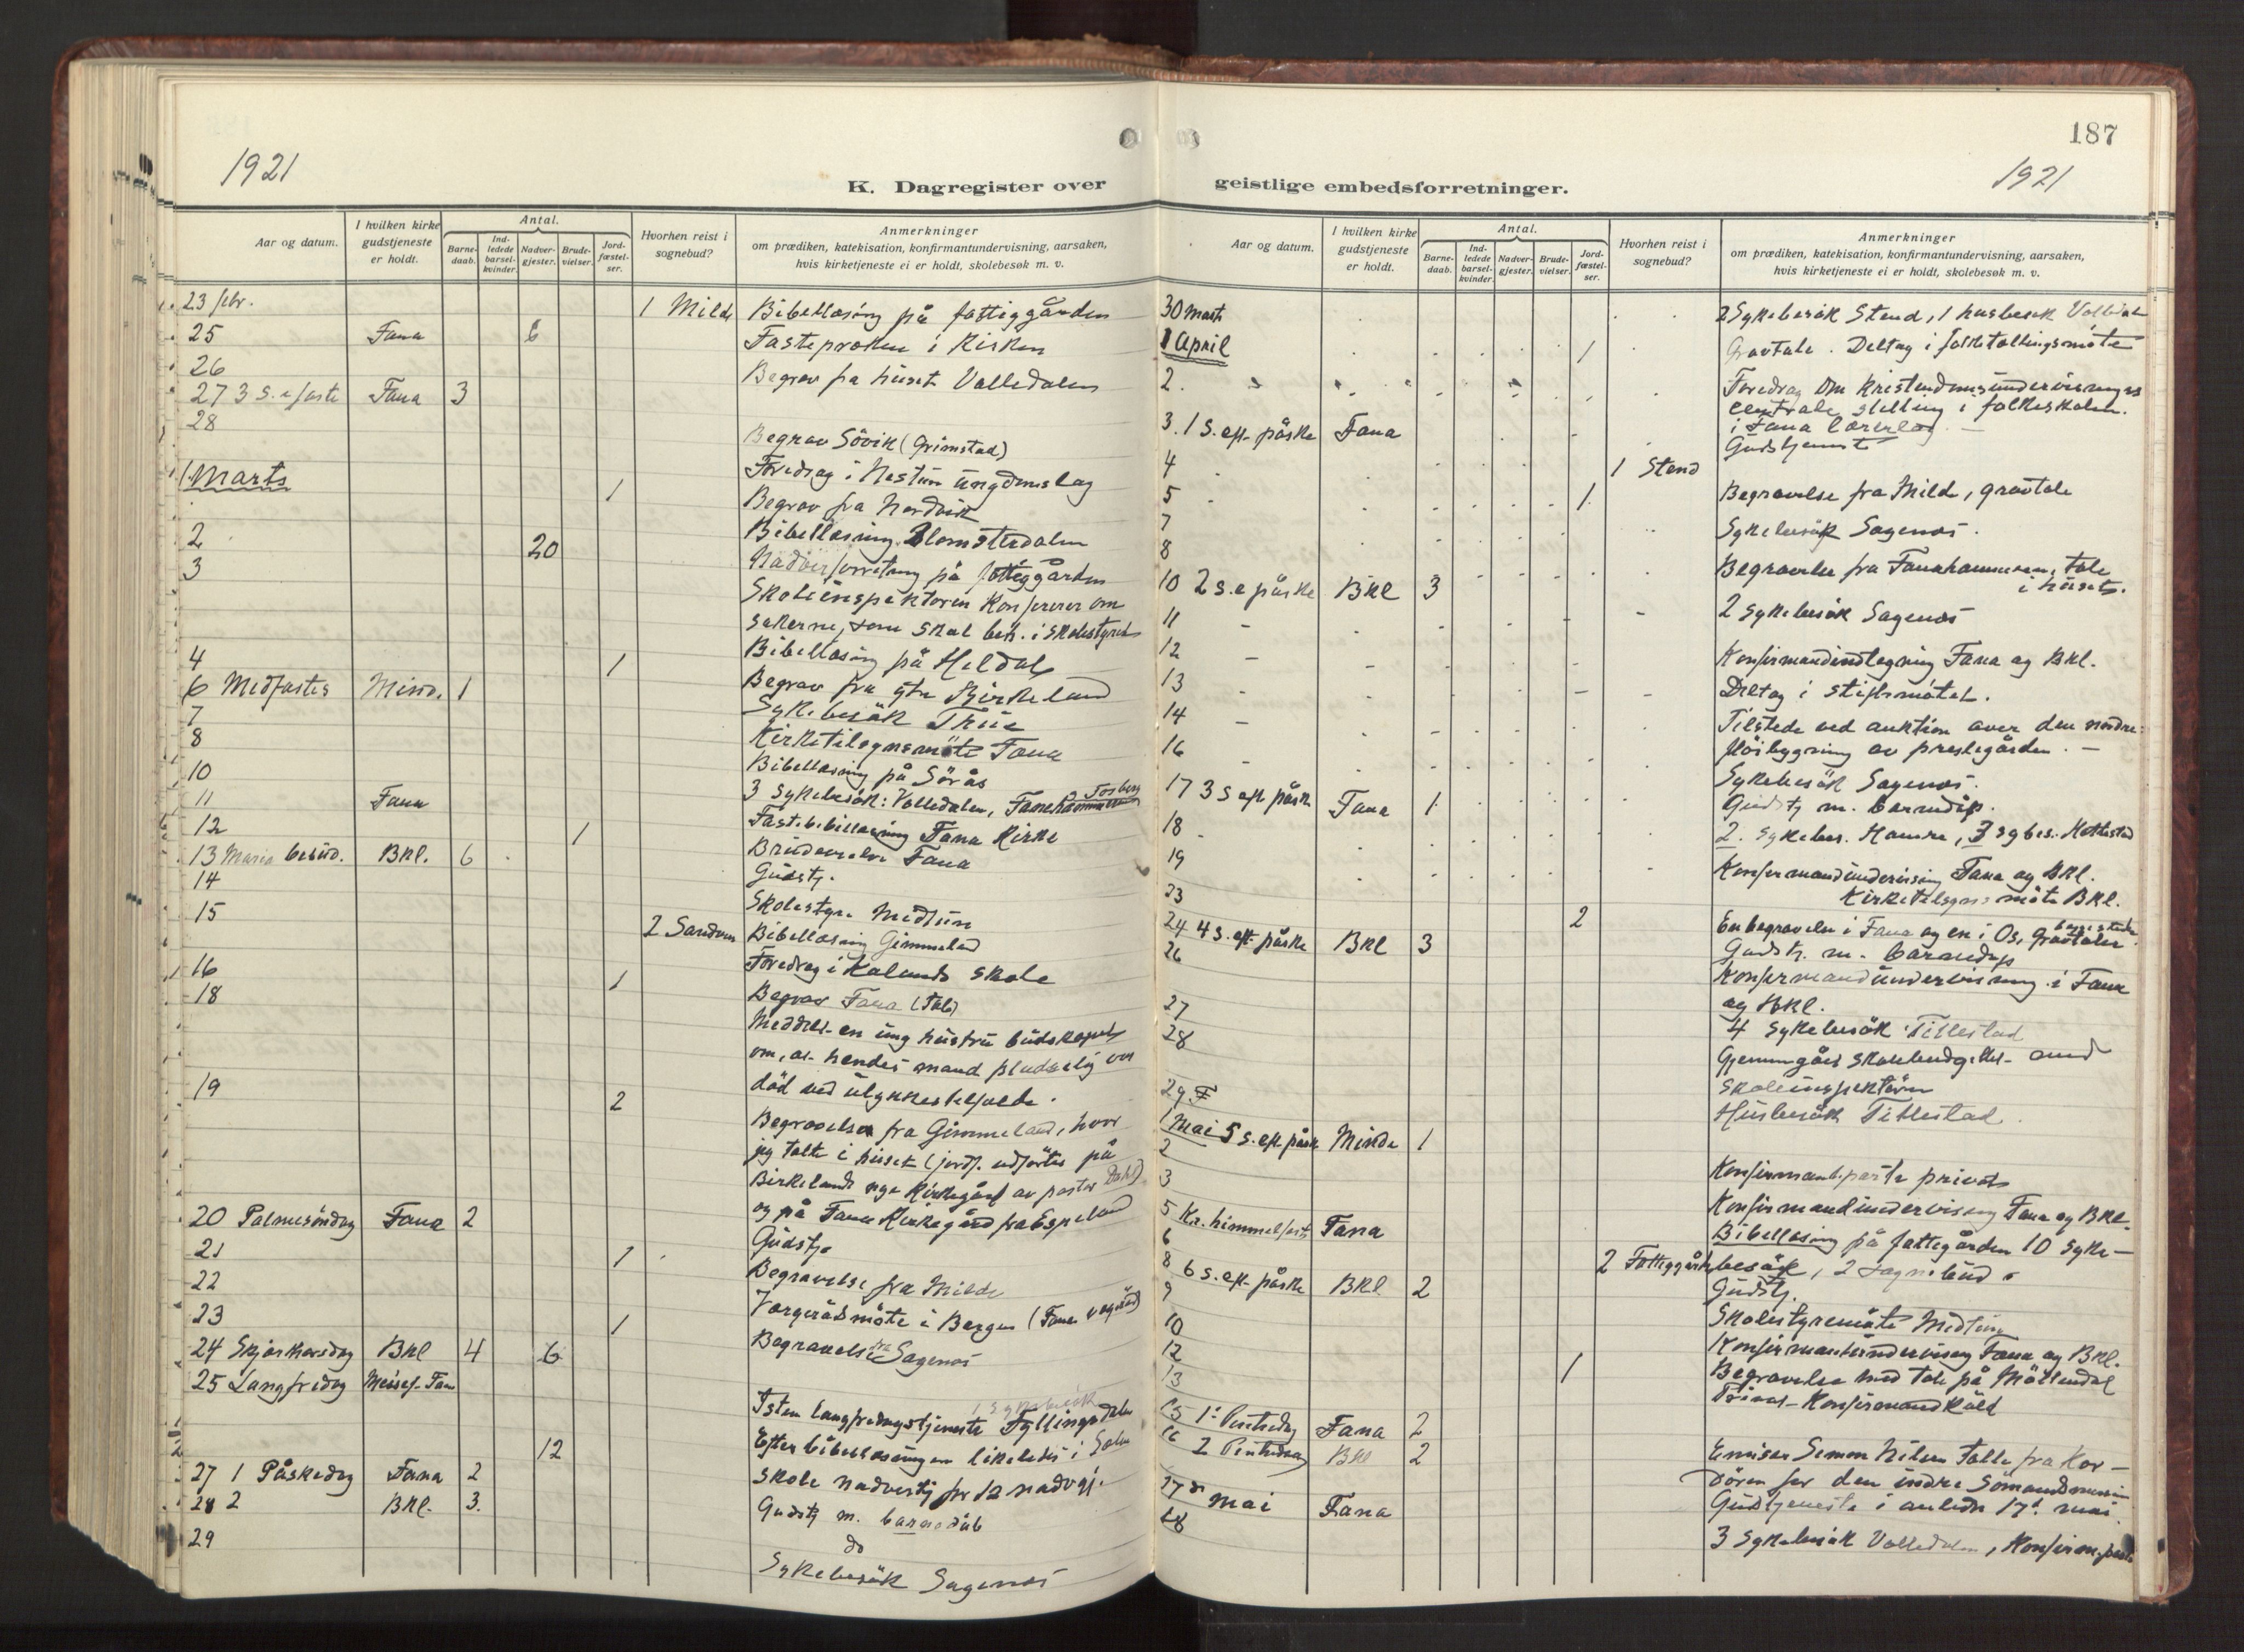 187
1921
1921
K. Dagregister over
geistlige embedsforretninger.
Aar og datum.
I hvilken kirke gudstjeneste er holdt.
Antal.
Barne-daab.
Ind-ledede barsel-kvinder.
Nadver-gjester.
Brude-vielser.
Jord-fæstel-ser.
Hvorhen reist i sognebud?
Anmerkninger
om prædiken, katekisation, konfirmantundervisning, aarsaken,
hvis kirketjeneste ei er holdt, skolebesøk m. v.
23 febr. 1 Milde Bibellæsing på fattiggården
25 Fana 6 Fastepræken i Kirken
26 Begrav fra huset Valledalen
27 3 S. i faste Fana 3
28 Begrav Sövik (Grimstad)
Foredrag i Nestun ungdomslag
1. Marts 1 Begrav fra Nordvik
Bibellæsing Blomsterdalen
2 20 Nadverforretning på fattiggården
3 Skoleinspektören konfererer om
sakerne, som skal beh. i skolestyret
Bibellæsing på Heldal
4 1 Begrav fra ytre Birkeland
6 Midfaste Minde. 1
7 Sykebesök
8 Kirketilsynsmöte Fana
10 Bibellæsing på Sörås
3 sykebesök: Valledalen, Fanehammeren
11 Fana Fastebibellæsning Fana Kirke
12 1 Brudevielse Fana
13 Maria besud. BKl. 6 Gudstj.
14 Skolestyre Midtun
15 2 Sandven Bibellæsing Gimmeland
Foredrag i Kalands skole
16 1 Begrav Fana (tale)
18 Meddelt en ung hustru budskapet
om, at hendes mand pludselig var
död ved ulykkestilfælde.
19 2 Begravelse fra Gimmeland, hvor
jeg talte i huset (jordf. udförtes på
Birkelands nye Kirkegård av pastor Dahl)
og på Fana Kirkegård fra Espeland
20 Palmesöndag Fana 2 Gudstj.
21 1 Begravelse fra Milde
22 Værgerådsmöte i Bergen
23 1 Begravelse fra Sagenes
24 Skjærtorsdag BKl 4 6
25 Langfredag 1 sykebesök
langfredagstjeneste Fyllingsdalen
12 Efter bibellæsningen likeledes i
skole nadvertj for 12 nadvgj.
27 1 Påskedag Fana 2 Gudstj m. barnedåb
28 2 BKl. 3. do
29 Sykebesök Sagenes
Aar og datum.
I hvilken kirke gudstjeneste er holdt.
Antal.
Barne-daab.
Ind-ledede barsel-kvinder.
Nadver-gjester.
Brude-vielser.
Jord-fæstel-ser.
Hvorhen reist i sognebud?
Anmerkninger
om prædiken, katekisation, konfirmantundervisning, aarsaken,
hvis kirketjeneste ei er holdt, skolebesøk m. v.
30 marts 2 Sykebesök Stend, 1 husbesök
1 April 1 Gravtale. Deltag i folketællingsmöte
2. Foredrag om kristendomsundervisningens
centrale stilling i folkeskolen.
i Fana lærerlag. —
3. 1 S. eft. påske Fana Gudstjenest
4 1 Stend
5 1. Begravelse fra Milde, gravtale
7 Sykebesök Sagenes.
8 Begravelse fra Fanahammeren, tale
i huset.
10 2 s. e påske BKl 3
11 2 sykebesök Sagenes
12 Konfirmandindtegning Fana og BKl.
13 Deltag i stiftsmötet.
14 Tilstede ved auktion over den nordre
flöibygning av prestegården. —
16 Sykebesök Sagenes.
17 3 S eft påske Fana 1 Gudstj m. barnedåp.
18 2. sykebes. Hamre, 3 sygbes.
19 Konfirmandundervisning Fana og BKl.
Kirketilsyns möte BKl.
23 2 En begravelse i Fana og en i Os, gravtaler
24 4 s. eft. påske BKl 3 Gudstj. m. barnedåp
26 Konfirmandundervisning i Fana
og BKl.
27 4 Sykebesök Tillestad
28 Gjennemgået skolebudgettet med
Skoleinspektören
29 Husbesök Tillestad.
1 Mai 5 s. eft påske Minde 1
2
3 Konfirmandundervisning Fana og BKl.
5 Kr. himmelfart Fana
6 2 Fattiggård Bibellæsing på fattegården 10 syke-
besök, 2 sognebud.
8 6 s. eft. påske BKl 2 Gudstj.
9 Skolestyremöte Midtun
10 Konfirmantundervisning Fana og BKl.
12 1 Begravelse med tale på Möllendal
13
15 1. Pinsedag Fana 2
16 2 Pinsedag BKl 2 Emissær Simon Nilsen talte fra Kor-
dören for den indre Sömandsmission
17de mai Fana Gudstjeneste i anledn 17d. mai.
18 3 Sykebesök Valledalen,